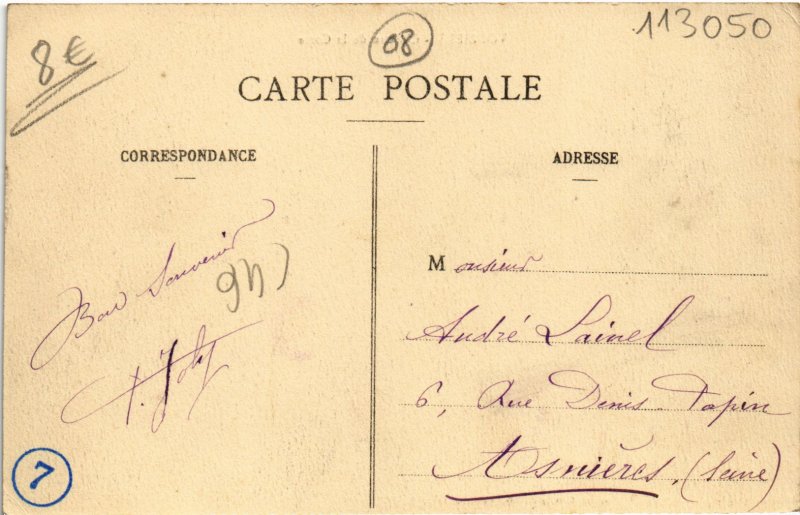 8€
08
113050
CARTE POSTALE
CORRESPONDANCE
Bon Souvenir
7
ADRESSE
Monsieur
André Lainel
6, Rue Denis Papin
Asnières, (Seine)